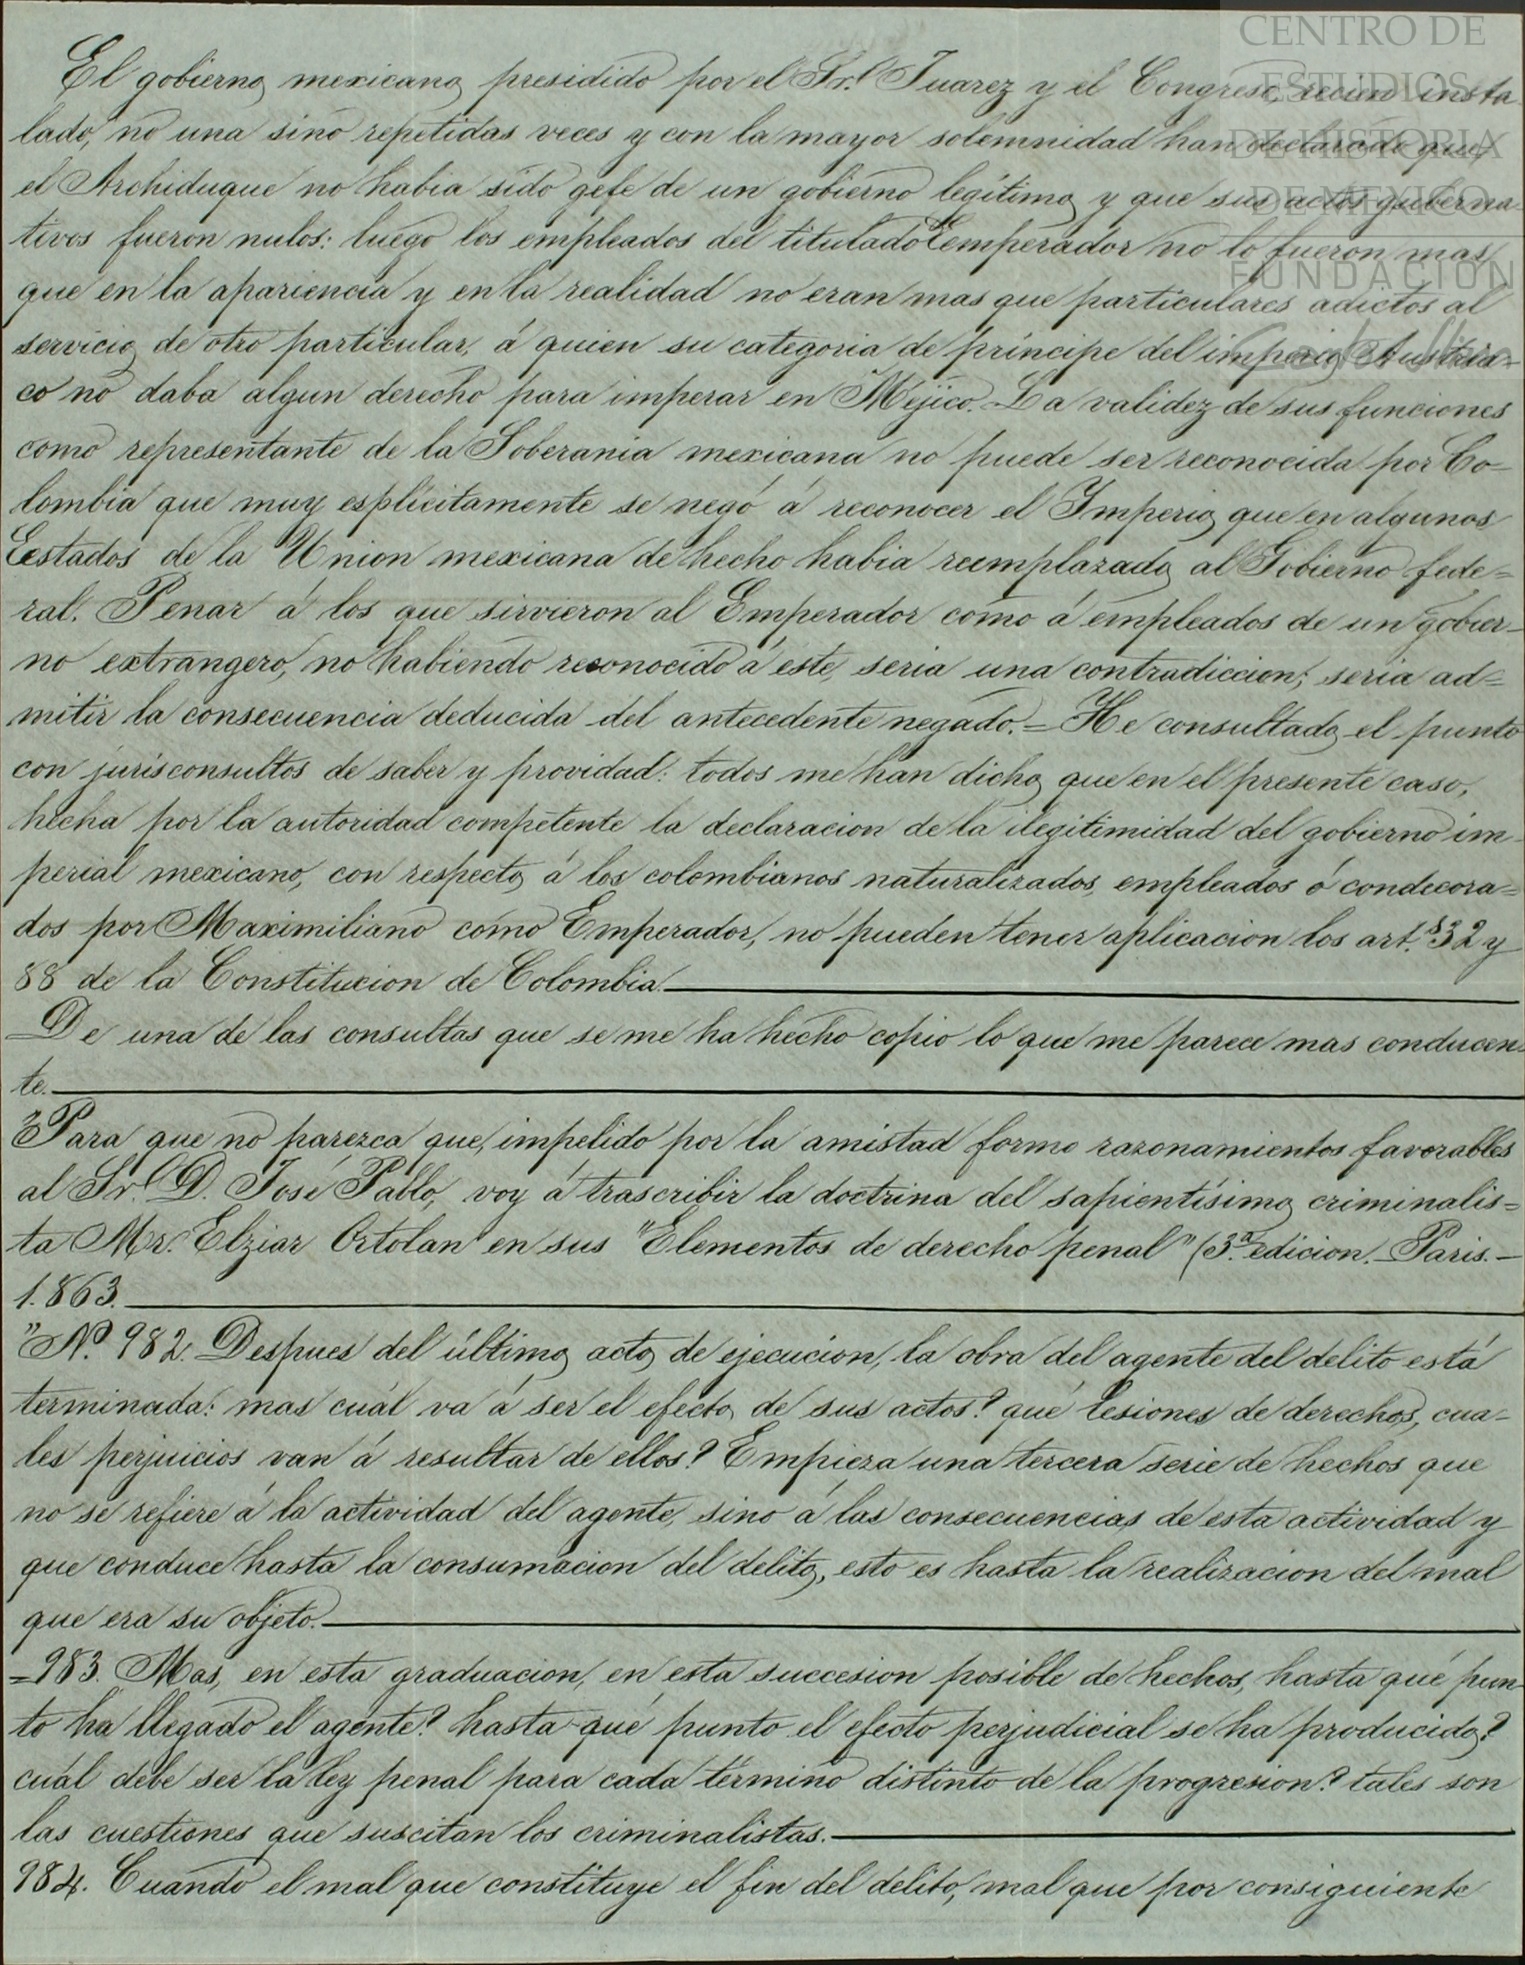 El gobierno mexicano presidido por el Sr. Juarez y el Congreso recien insta
lado, no una sino repetidas veces y con la mayor solemnidad han declarado que
el Archiduque no habia sido gefe de un gobierno legítimo y que sus actos guberna
tivos fueron nulos: luego los empleados del titulado Emperador no lo fueron mas
que en la apariencia y en la realidad no eran mas que particulares adictos al
servicio de otro particular, á quien su categoria de príncipe del imperio Austria-
co no daba algun derecho para imperar en Méjico. La validez de sus funciones
como representante de la Soberania mexicana no puede ser reconocida por Co-
lombia que muy esplícitamente se negó á reconocer el Imperio que en algunos
Estados de la Union mexicana de hecho habia reemplazado al Gobierno fede=
ral. Penar á los que sirvieron al Emperador como á empleados de un gobier-
no extrangero, no habiendo reconocido á este, seria una contradiccion; seria ad=
mitir la consecuencia deducida del antecedente negado.= He consultado el punto
con jurisconsultos de saber y providad: todos me han dicho que en el presente caso,
hecha por la autoridad competente la declaracion de la ilegitimidad del gobierno im
perial mexicano, con respecto á los colombianos naturalizados, empleados ó condecora=
dos por Maximiliano como Emperador, no pueden tener aplicacion los art.s 32 y
88 de la Constitucion de Colombia.
De una de las consultas que se me ha hecho copio lo que me parece mas conducen
te.
"Para que no parezca que, impelido por la amistad formo razonamientos favorables
al Sr. D. José Pablo, voy á trascribir la doctrina del sapientísimo criminalis=
ta Mr. Elziar Ortolan en sus "Elementos de derecho penal" (3.a edicion. Paris.-
1.863.
"N.o 982. Despues del último acto de ejecucion, la obra del agente del delito está
terminada: mas cuál va á ser el efecto de sus actos? qué lesiones de derechos, cua-
les perjuicios van á resultar de ellos? Empieza una tercera serie de hechos que
no se refiere á la actividad del agente, sino á las consecuencias de esta actividad y
que conduce hasta la consumacion del delito, esto es hasta la realizacion del mal
que era su objeto.
=983. Mas, en esta graduacion, en esta succesion posible de hechos, hasta qué pun
to ha llegado el agente? hasta qué punto el efecto perjudicial se ha producido?
cuál debe ser la ley penal para cada término distinto de la progresion? tales son
las cuestiones que suscitan los criminalistas.
984. Cuando el mal que constituye el fin del delito, mal que por consiguiente
CENTRO DE
ESTUDIOS
DE HISTORIA
DE MEXICO
FUNDACION